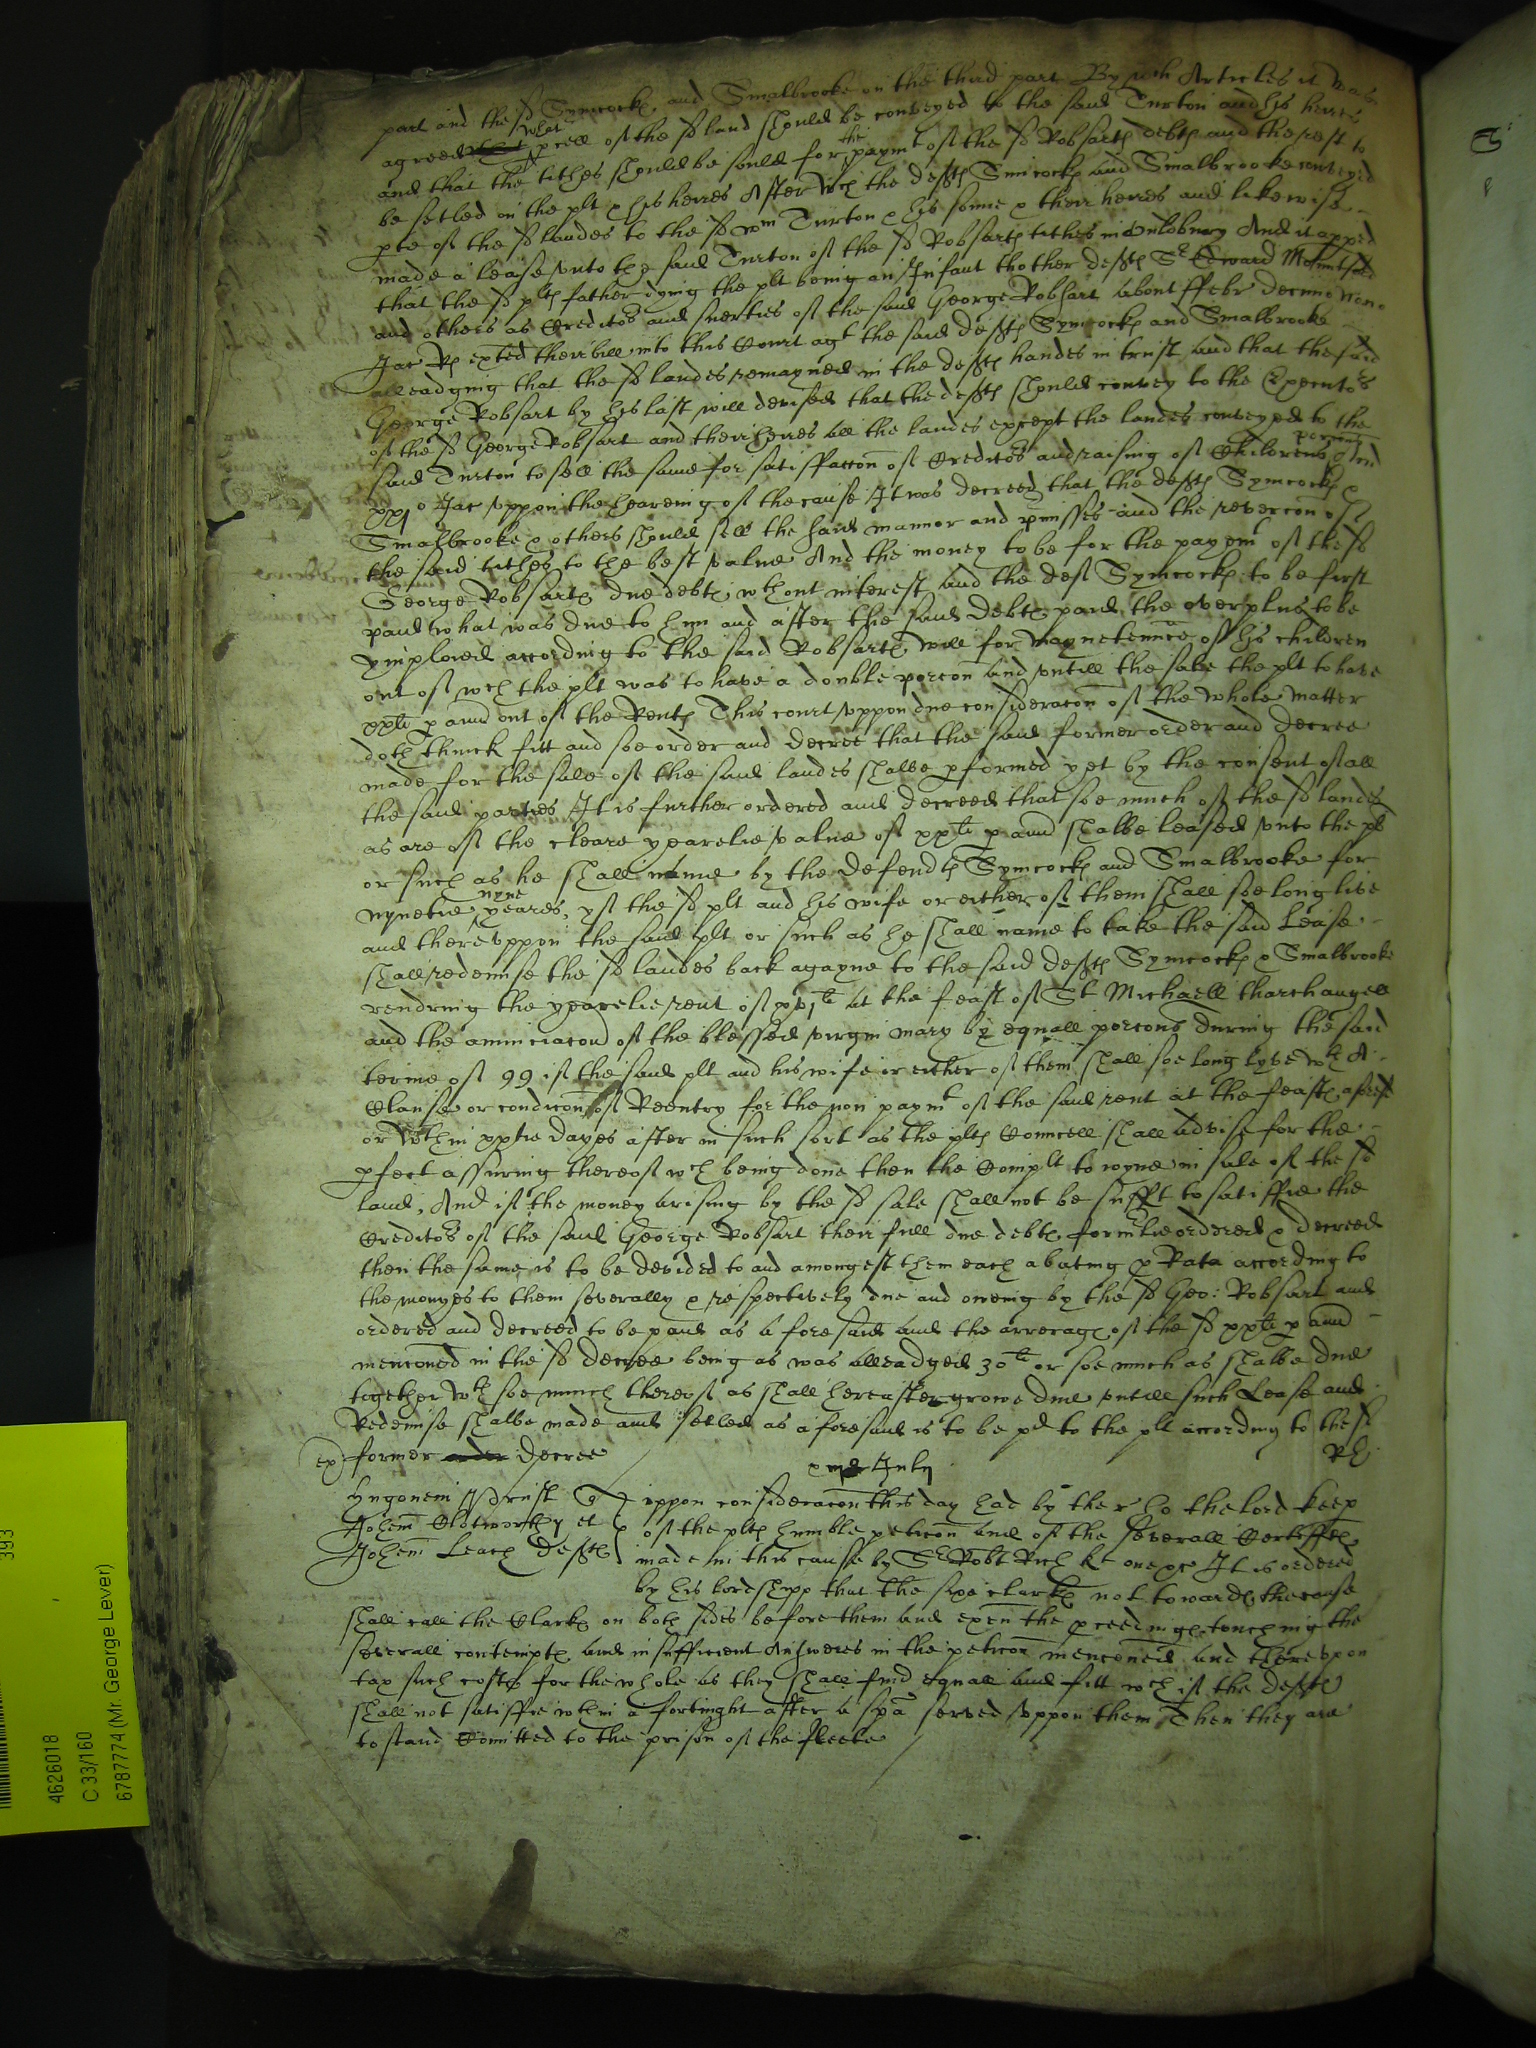 part and the sd Symcock, and Smalbrooke on the third part By wch Articles it was
agreed what pcell of the sd land should be conveyed to the said Turton and his heires
and that the tithes should be sould for the paymt of the sd Robsart debt and the rest to
be setled on the plt & his heires After wch the defts Simcock and Smalbrooke conveyed
pte of the sd landes to the sd Wm Turton & his sonne & their heires and likewise
made a lease unto the said Turton of the sd Robsart tithes in And it apped
that the sd plts father dying the plt being an Infant thother defts Sr Edward
and others as Creditors and suerties of the said George Robsart about ffebr decimo nono
Jac Rs their bill into this Court agt the said defts Symcock and Smalbrooke
alleadging that the sd landes remayned in the defts handes in trust and that the said
George Robsart by his last will devised that the defts should convey to the Executors
of the sd George Robsart and their heires all the landes except the landes conveyed to the
said Turton to sell the same for satisfaccon of Creditors and raising of Childrens porcons And
xxjo Jac uppon the heareing of the cause It was decreed that the defts Symcock &
Smalbrooke & others should sell the said mannor and pmisses and the revercon of
the said tithes to the best value And the money to be for the payemt of the sd
George Robsart due debt, wthout interest and the deft Symcock to be first
paid what was due to him and after the said debt paid, the overplus to be
ymploied according to the said Robsart will for maynetennce of his children
out of wch the plt was to have a double porcon and untill the sale the plt to have
xxli p annu out of the Rent This court uppon due consideracon of the whole matter
doth thinck fitt and soe order and decree that the said former order and decree
made for the sale of the said landes shalbe pformed yet by the consent of all
the said parties It is further ordered and decreed that soe much of the sd landes
as are of the cleare yearelie value of xxli p annu shalbe leased unto the plt
or such as he shall name by the defendts Symcock and Smalbrooke for
nynetie nyne yeares, yf the sd plt and his wife or either of them shall soe long live
and thereuppon the said plt or such as he shall name to take the said Lease
shall redemise the sd landes back agayne to the said defts Symcock & Smalbrooke
rendring the yearelie rent of li at the feast of St Michaell tharchangell
and the annunciacon of the blessed virgin mary by equall porcons during the said
terme of 99 if the said plt and his wife or either of them shall soe long lyve wth A
Clause or condicon of Reentry for the non paymt of the said rent at the feast aforesd
or wthin xxtie dayes after in such sort as the plts Councell shall advise for the
pfect assuring thereof wch being done then the Complt to ioyne in sale of the sd
land, And if the money arising by the sd sale shall not be suffit to satisfie the
Creditors of the said George Robsart their full due debt, formlie ordered & decreed
then the same is to be devided to and amongest them each abating p Rata according to
the monyes to them severally & respectively due and oweing by the sd Geo: Robsart and
ordered and decreed to be paid as aforesaid and the arrerage of the sd xxli p annu
mencioned in the sd decree being as was alleadged 30li or soe much as shalbe due
together wth soe much thereof as shall hereafter growe due untill such Lease and
Redemise shalbe made and setled as aforesaid is to be pd to the plt according to the sd
ex former order decree Rl
July
Hugonem quer
Johem Clotworthy et
Johem Leach defts
uppon consideracon this day had by the r ho the lord keep
of the plts humble peticon and of the severall Certifft
made in this cause by Sr Robt Rich kt one &c It is ordered
by his lordshipp that the sixe clark not toward the cause
shall call the Clark on both sides before them and exen the pceeding touching the
severall contempt, and insufficient Answeres in the peticon mencioned and thereupon
tax such costs for the whole as they shall find equall and fitt wch if the defts
shall not satisfie wthin a fortinght after a spa served uppon them Then they are
to stand Comitted to the prison of the fleete
393
4626018
C 33/160
6787774 (Mr. George Lever)